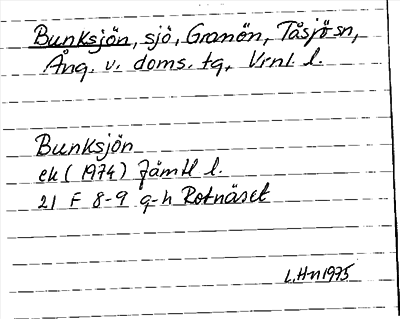 Bunksjön, sjö, Granön, Tåsjö sn,
Ång. v. doms. tg, Vrnl. l.
Bunksjön
ek (1974) Jämtl l.
21 F 8-9 g-h Rotnäset
L.Hn 1975